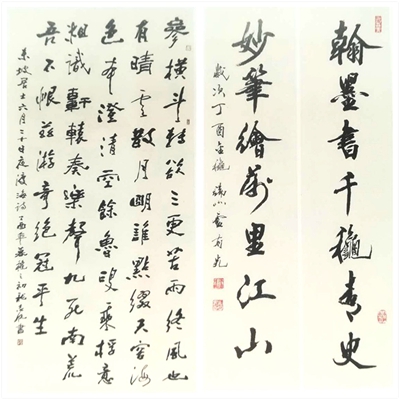 翰墨書千穐青史
妙筆繪萬里江山
歲次丁酉金穐
參橫斗轉欲三更苦雨終風也
有晴雲散月明誰點綴天容海
色本澄清空餘魯叟乘桴意
粗識軒轅奏樂聲九死南荒
吾不恨茲游奇絕冠平生
東坡居士六月二十日夜渡海詩丁酉年之初書